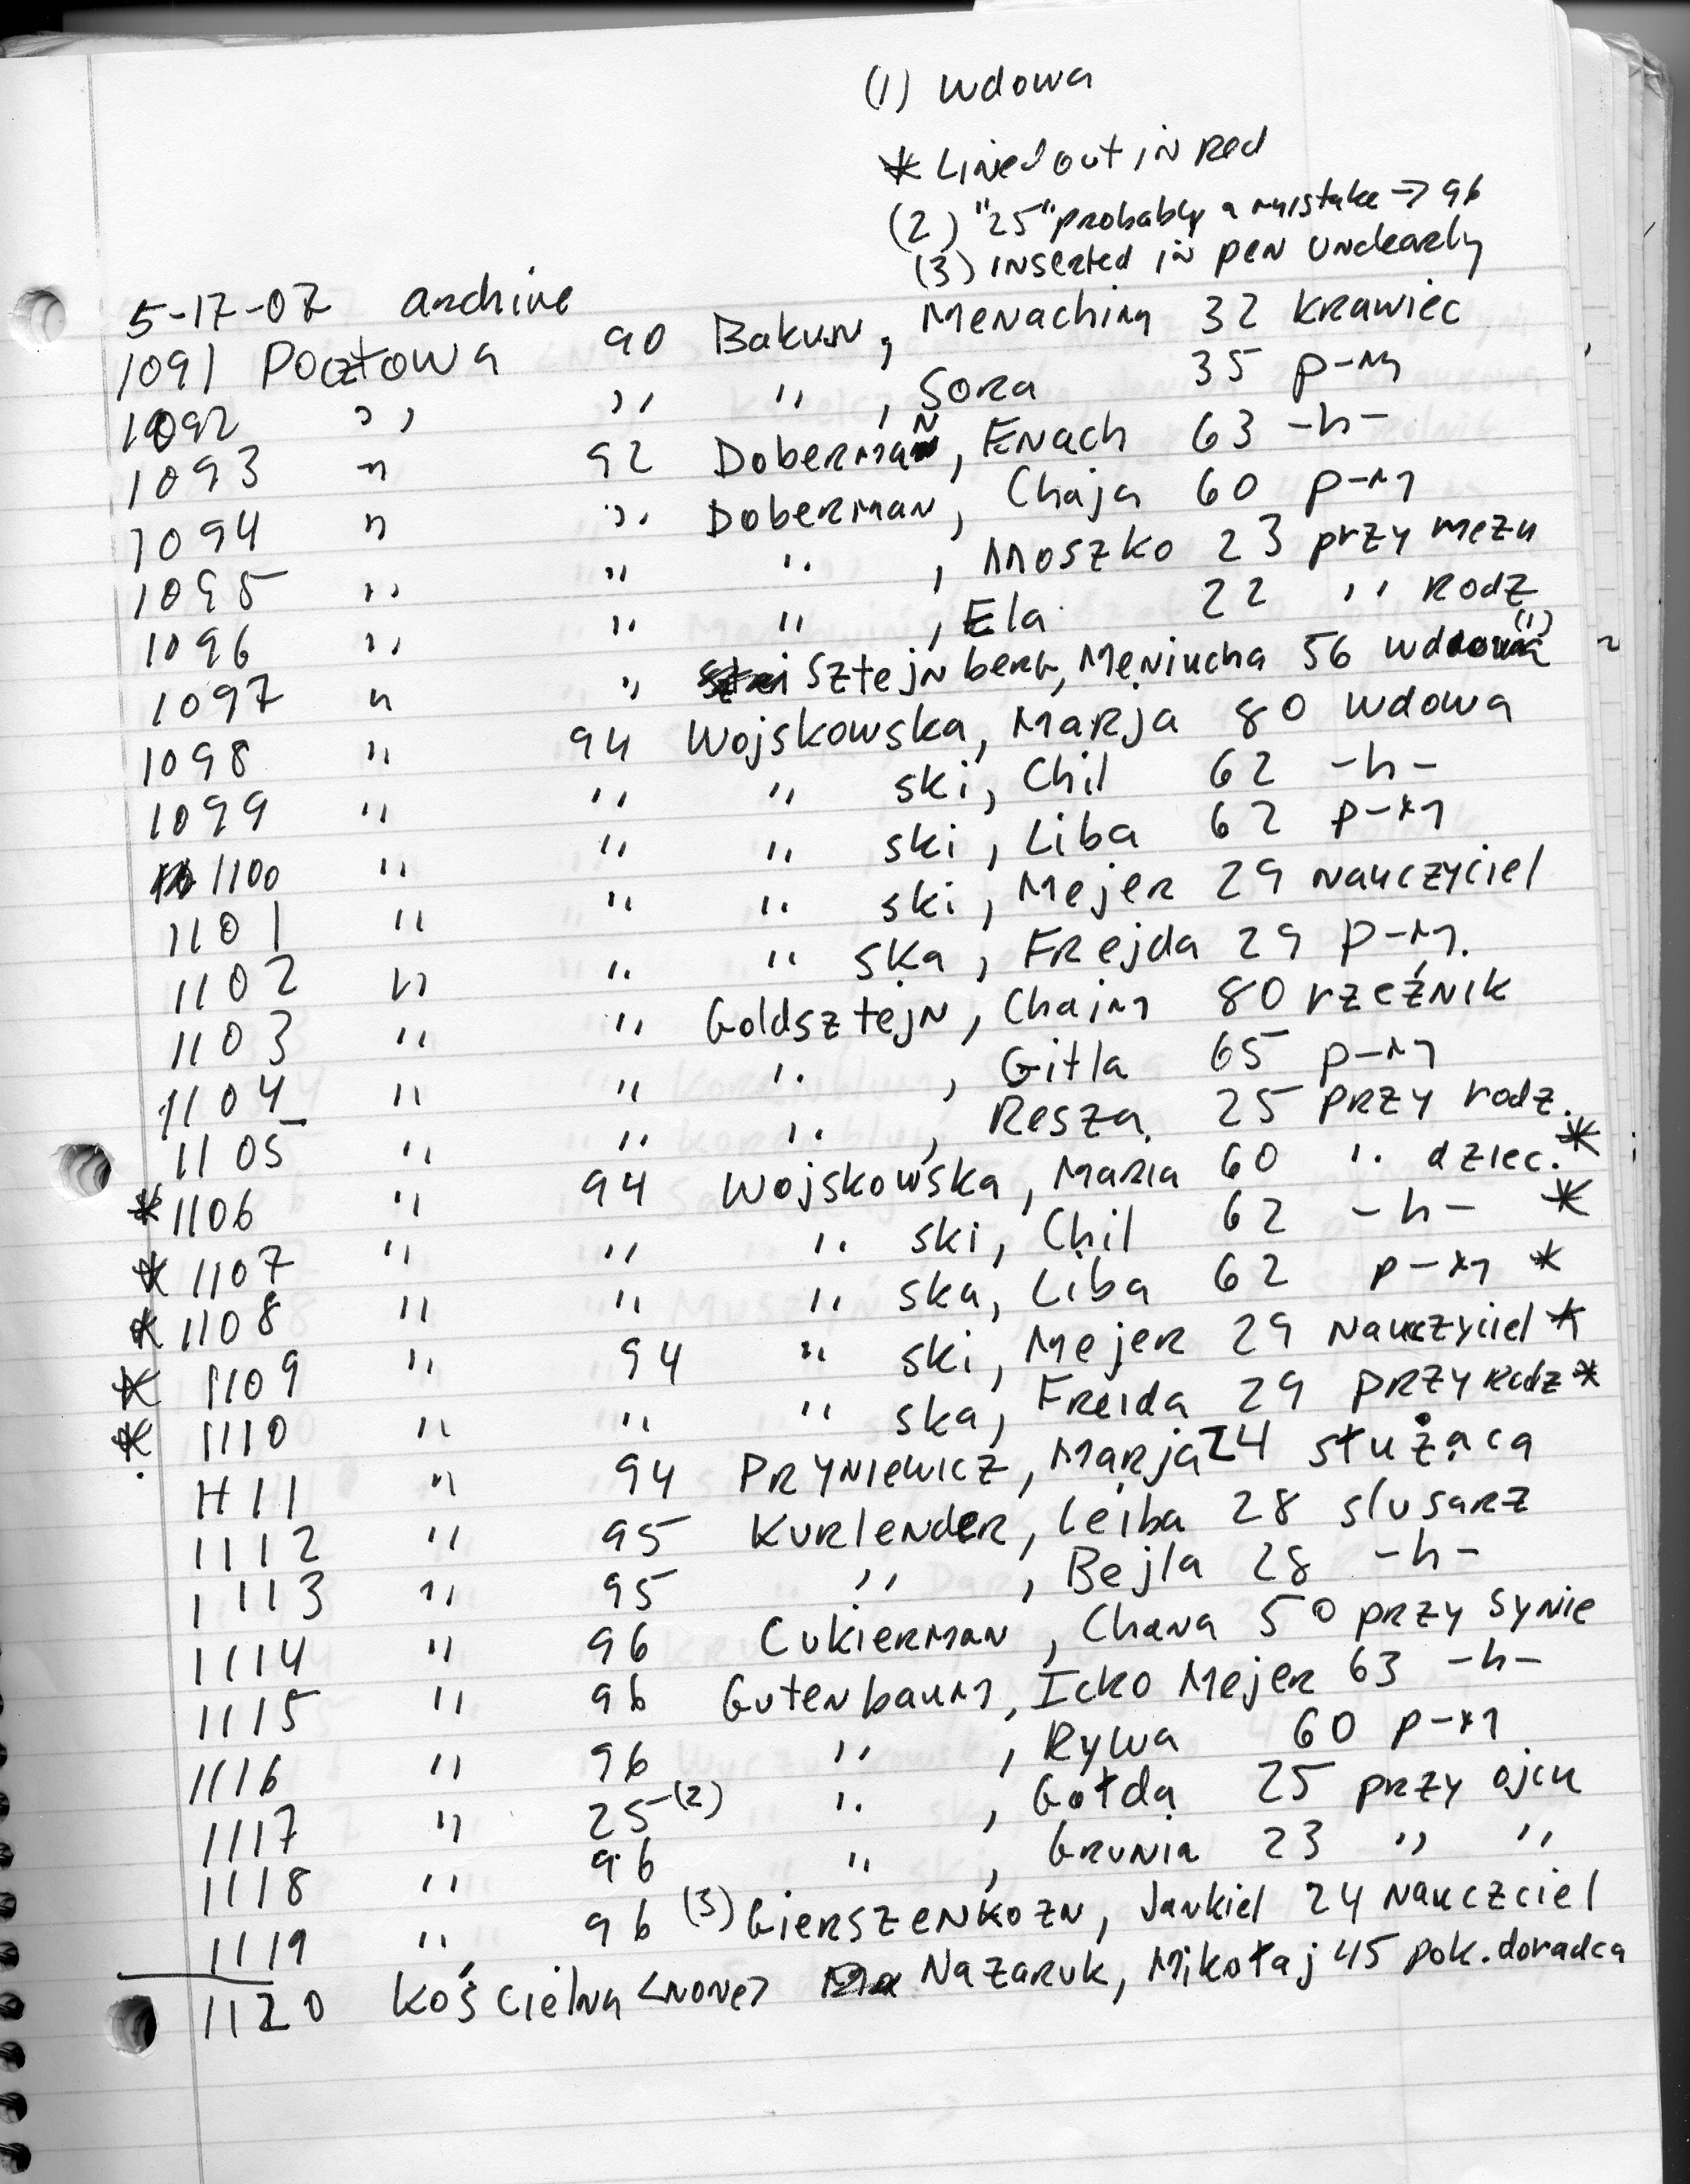 (1) wdowa
* Lined out in Red
(2) "25" probably a mistake → 96
(3) inserted in pen unclearly
5-17-07 archive
1091 Pocztowa 90 Bakun, Menachim 32 krawiec
1092 " " " , Sora 35 p-m
1093 " 92 Doberman, Enach 63 -h-
1094 " " Doberman, Chaja 60 p-m
1095 " " " , Moszko 23 przy mezu
1096 " " " , Ela 22 " Rodz
1097 " " Sztejnberg, Meniucha 56 wdowa (1)
1098 " 94 Wojskowska, Marja 80 wdowa
1099 " " " ski, Chil 62 -h-
1100 " " " ski, Liba 62 p-m
1101 " " " ski, Mejer 29 nauczyciel
1102 " " " ska, Frejda 29 p-m.
1103 " " Goldsztejn, Chaim 80 rzeźnik
1104 " " " , Gitla 65 p-m
1105 " " " , Resza 25 przy rodz.
* 1106 " 94 Wojskowska, Maria 60 " dziec. *
* 1107 " " " ski, Chil 62 -h- *
* 1108 " " " ska, Liba 62 p-m *
* 1109 " 94 " ski, Mejer 29 nauczyciel *
* 1110 " " " ska, Freida 29 przy rodz *
1111 " 94 Pryniewicz, Marja 24 służąca
1112 " 95 Kurlender, Leiba 28 slusarz
1113 " 95 " , Bejla 28 -h-
1114 " 96 Cukierman, Chana 50 przy synie
1115 " 96 Gutenbaum, Icko Mejer 63 -h-
1116 " 96 " , Rywa 60 p-m
1117 " 25 (2) " , Gołda 25 przy ojcu
1118 " 96 " , Grunia 23 " "
1119 " 96 (3) Gierszenkozn, Jankiel 24 nauczciel
1120 Kościelna <none> Nazaruk, Mikołaj 45 pok. doradca